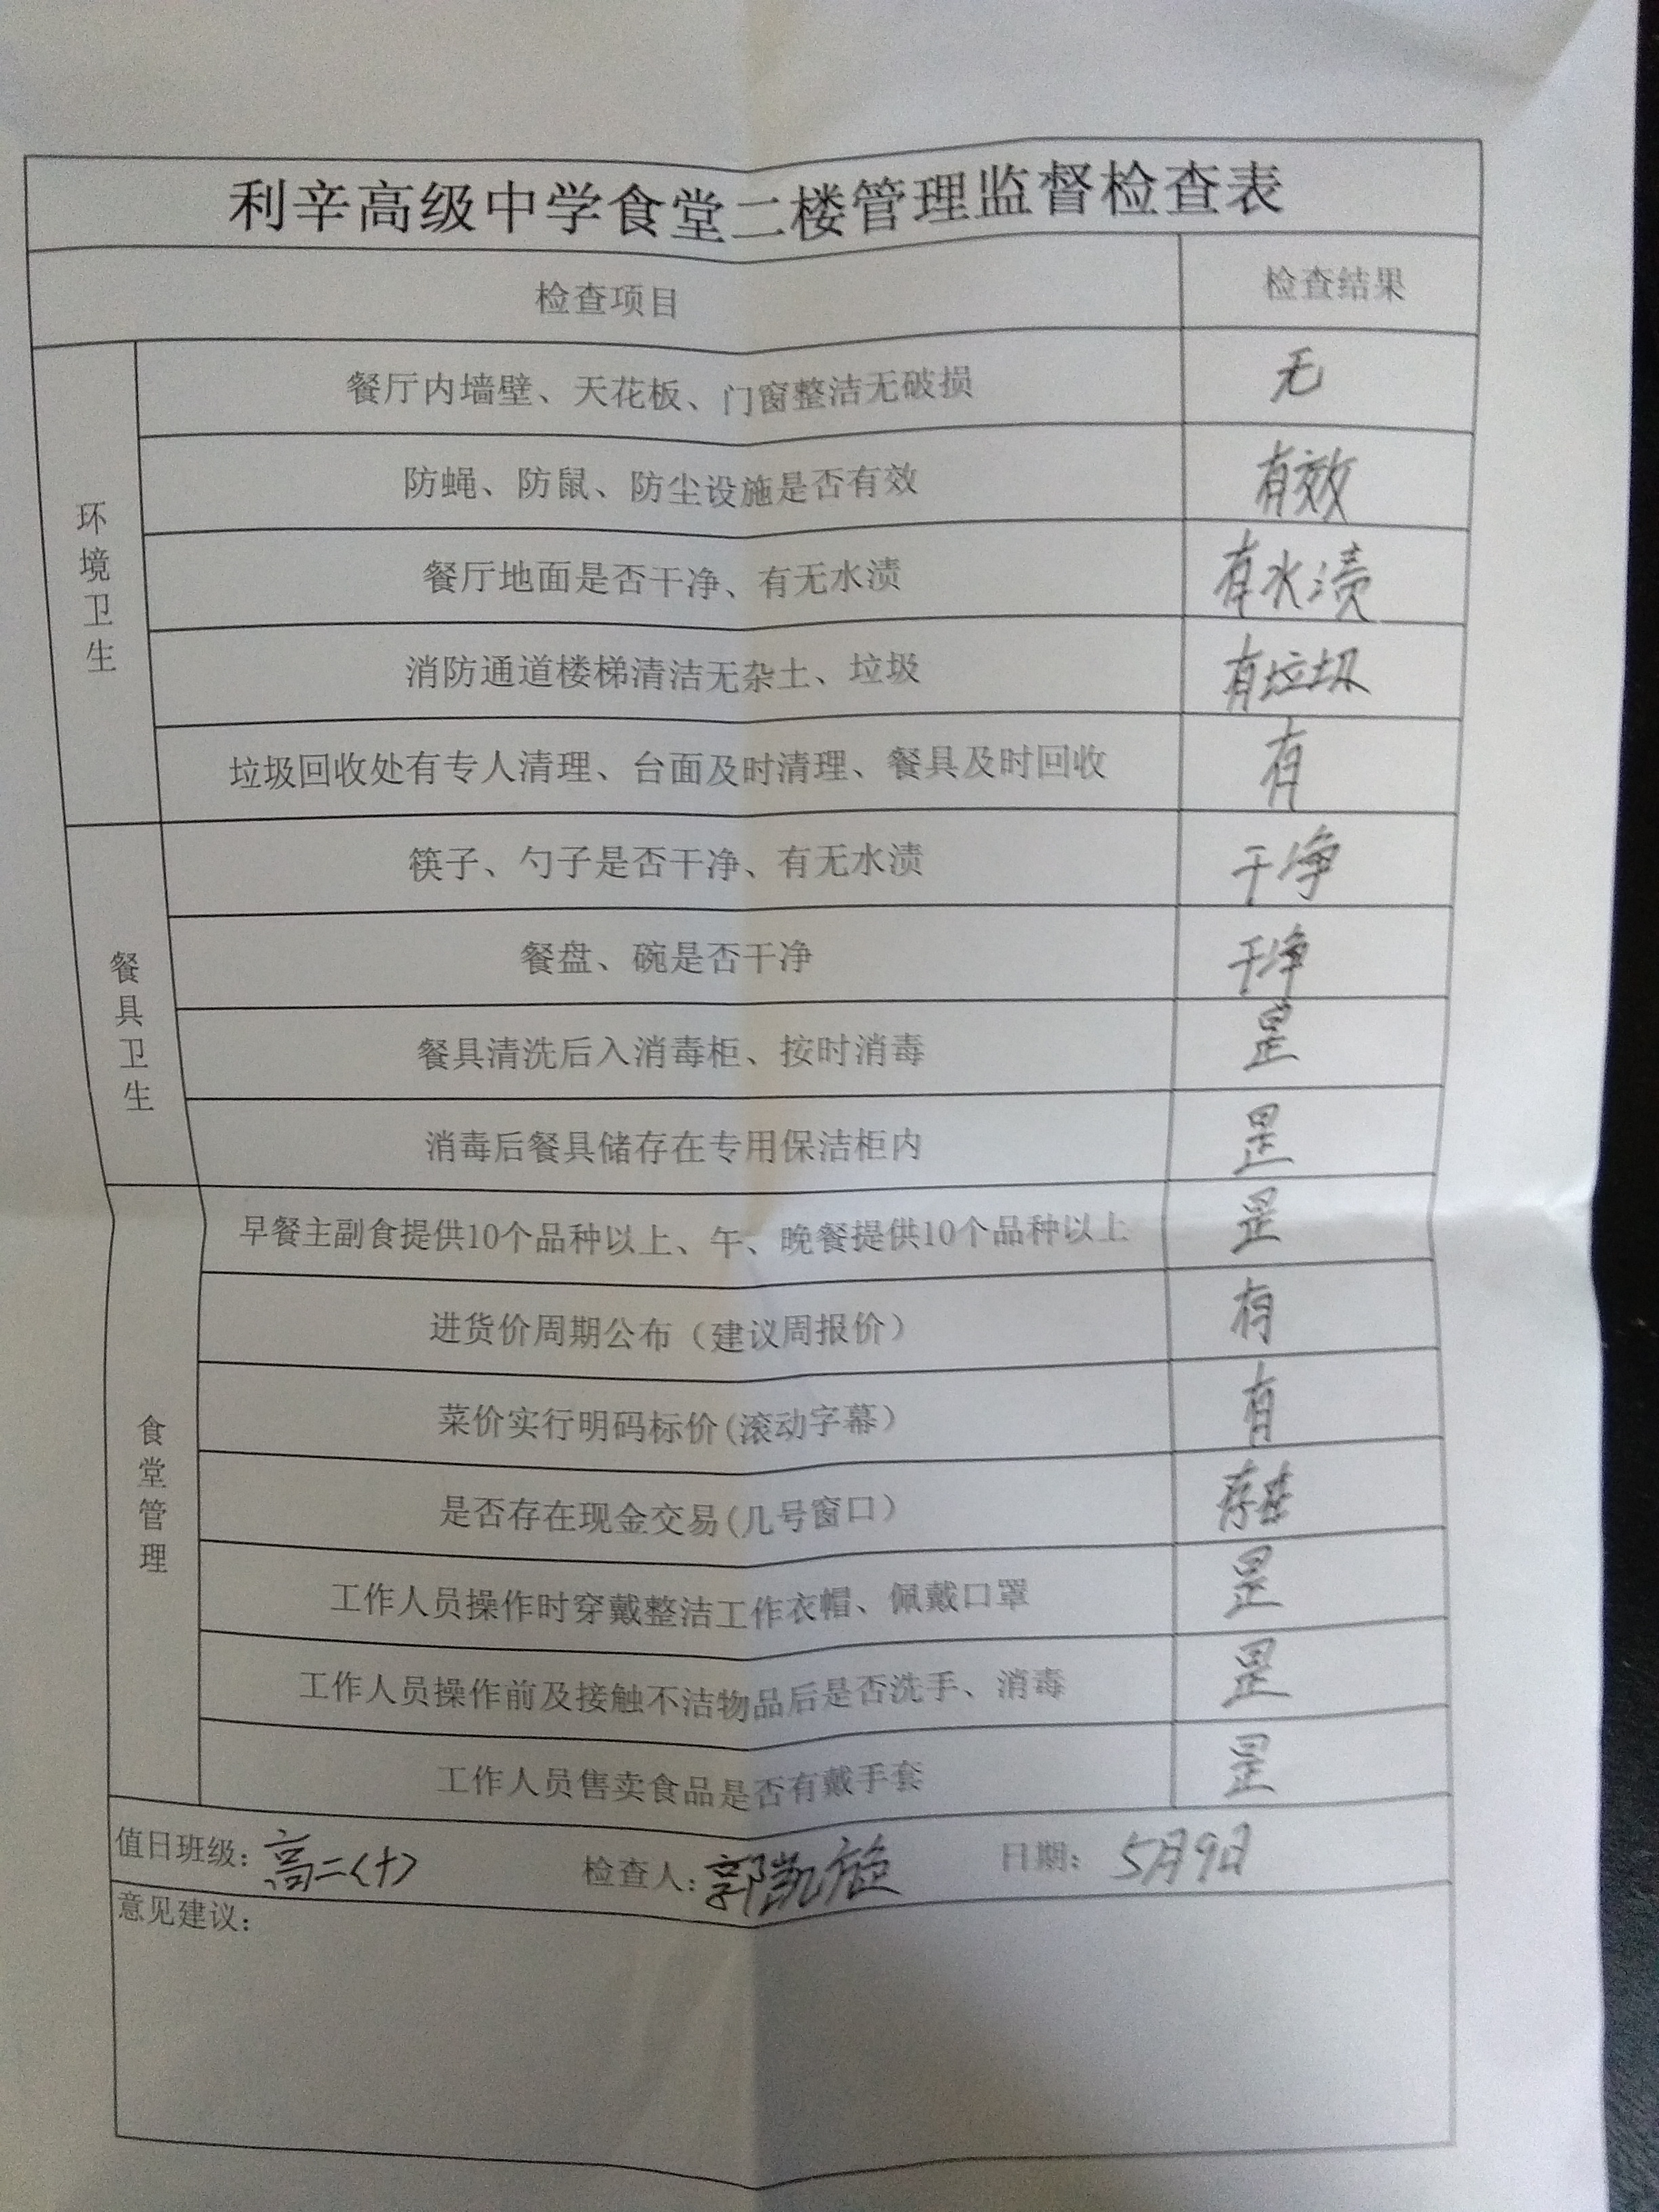 利辛高级中学食堂二楼管理监督检查表
检查项目 检查结果
环境卫生
餐厅内墙壁、天花板、门窗整洁无破损 无
防蝇、防鼠、防尘设施是否有效 有效
餐厅地面是否干净、有无水渍 有水渍
消防通道楼梯清洁无杂土、垃圾 有垃圾
垃圾回收处有专人清理、台面及时清理、餐具及时回收 有
餐具卫生
筷子、勺子是否干净、有无水渍 干净
餐盘、碗是否干净 干净
餐具清洗后入消毒柜、按时消毒 是
消毒后餐具储存在专用保洁柜内 是
食堂管理
早餐主副食提供10个品种以上、午、晚餐提供10个品种以上 是
进货价周期公布（建议周报价） 有
菜价实行明码标价(滚动字幕） 有
是否存在现金交易(几号窗口） 存在
工作人员操作时穿戴整洁工作衣帽、佩戴口罩 是
工作人员操作前及接触不洁物品后是否洗手、消毒 是
工作人员售卖食品是否有戴手套 是
值日班级：高二<十> 检查人：郭凯旋 日期：5月9日
意见建议：